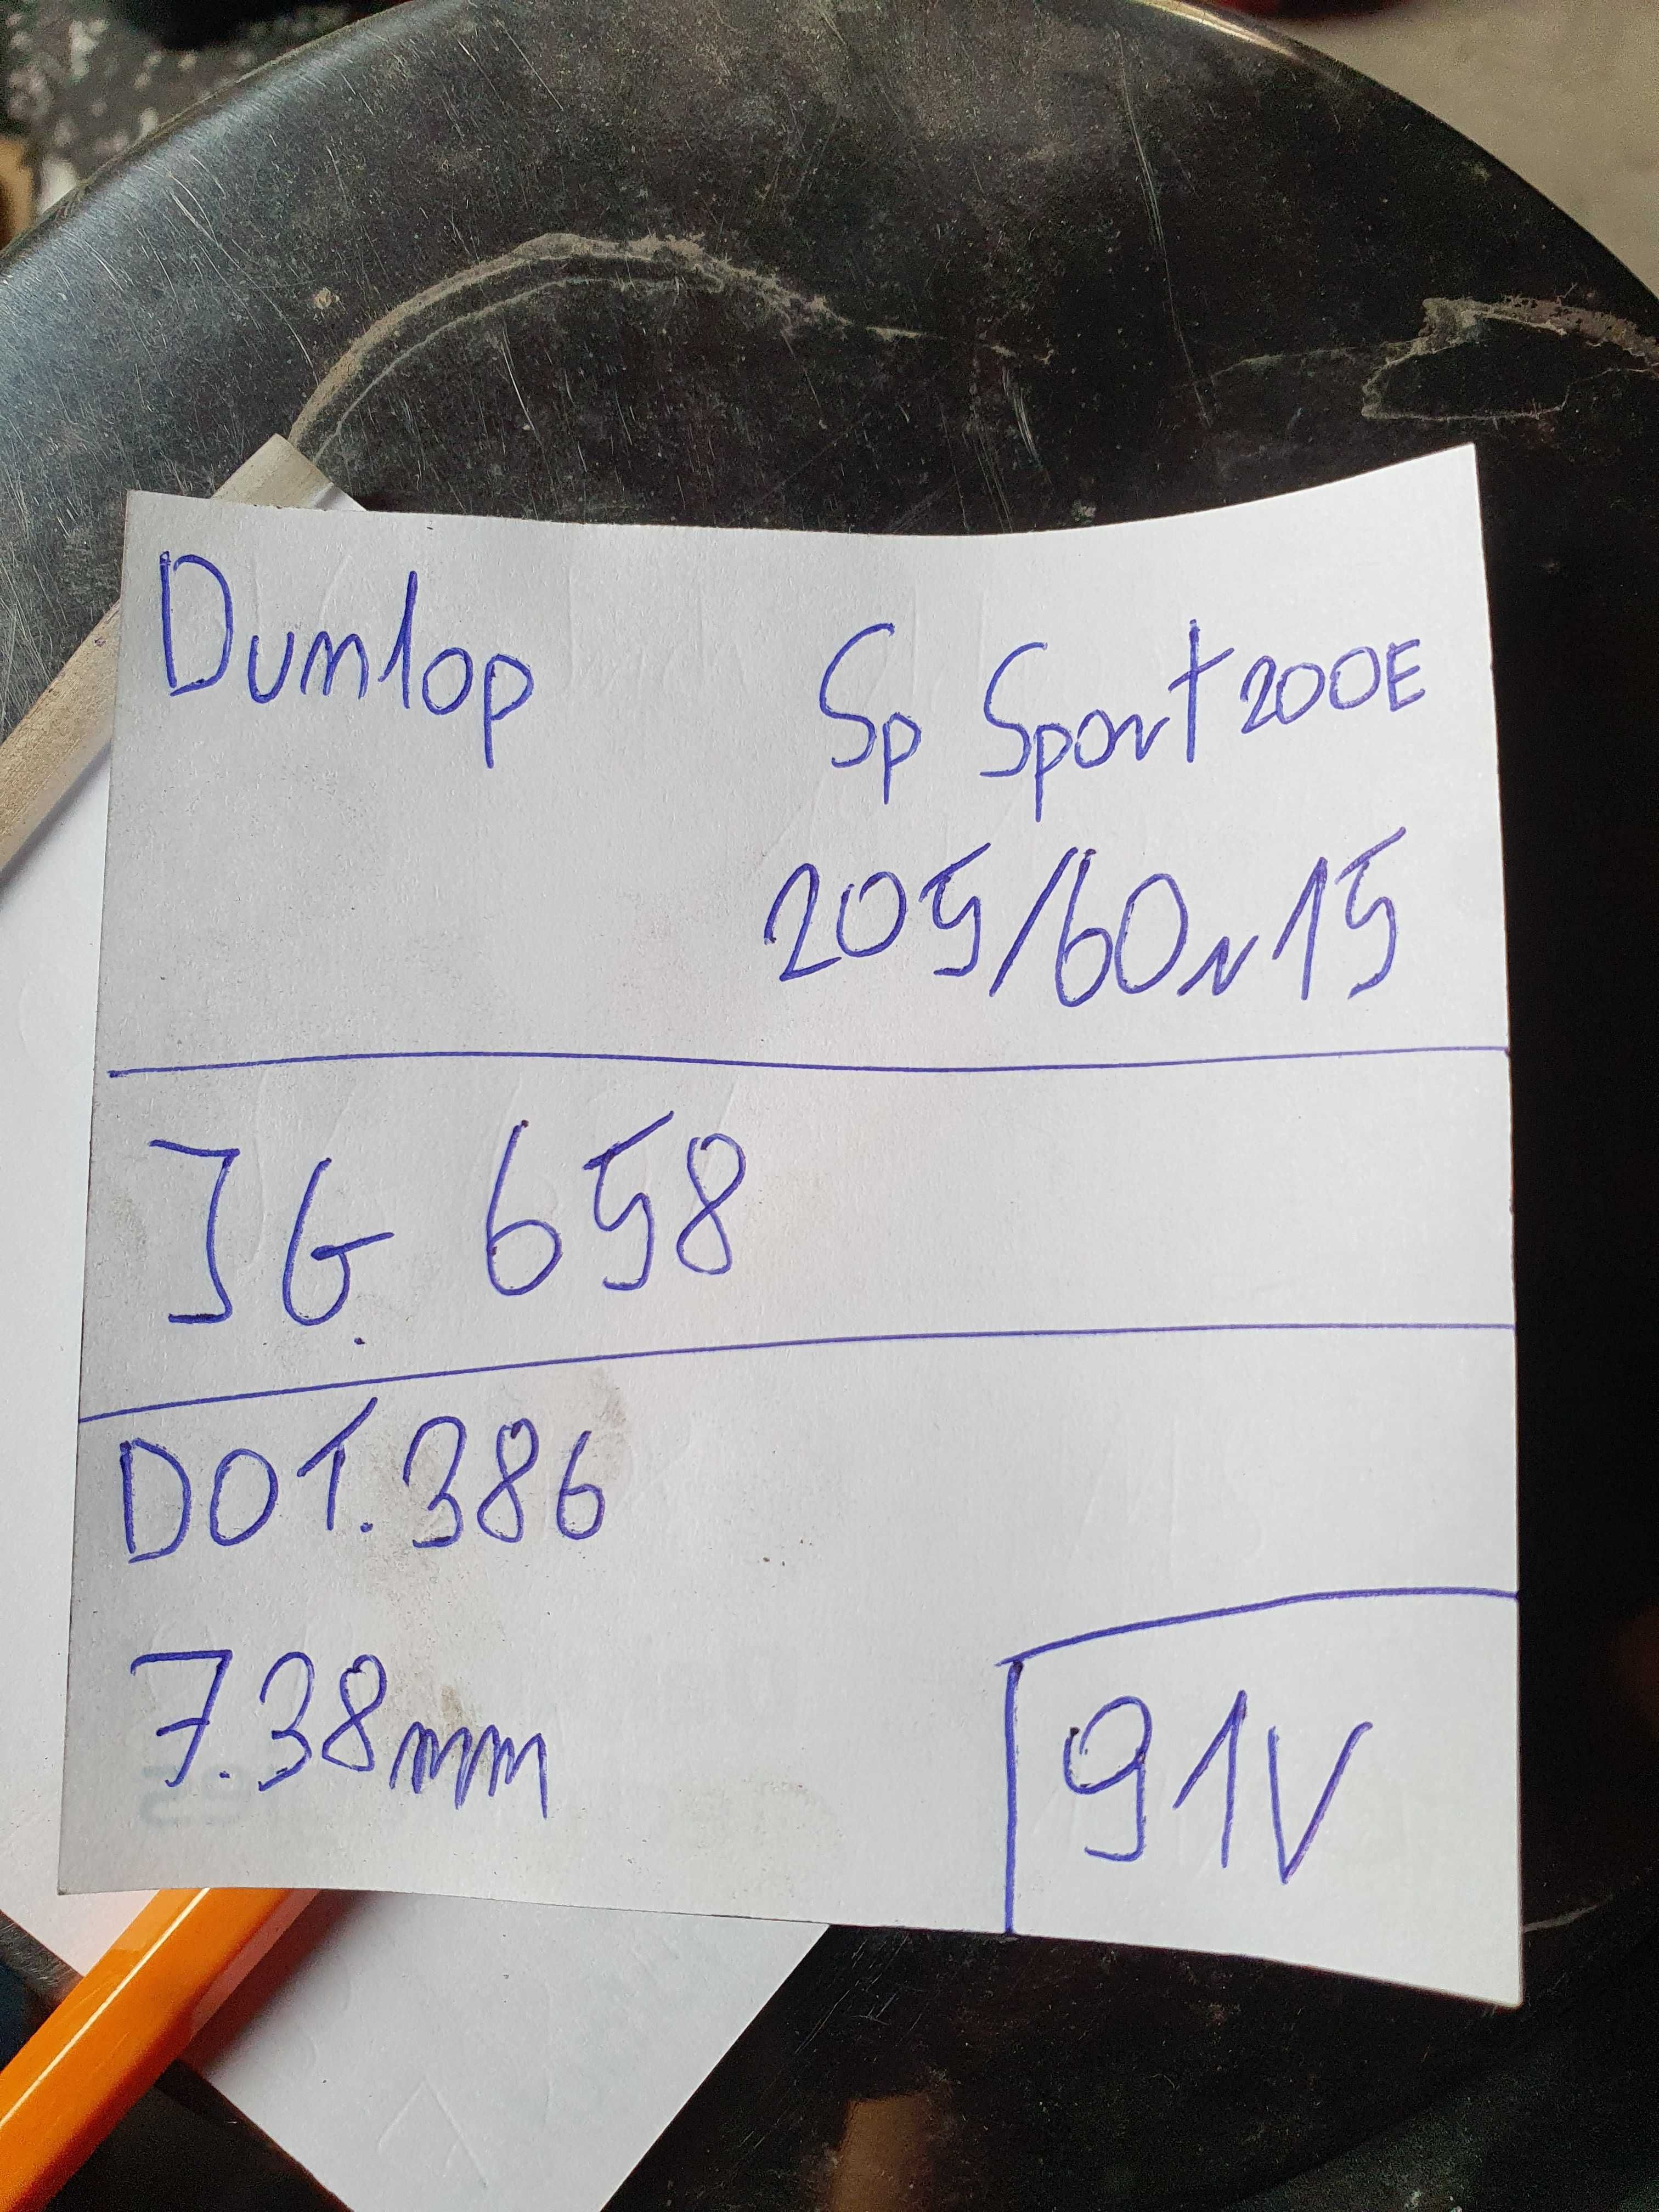 Dunlop
Sp Sport 200E
205/60r15
JG 658
DOT.386
7.38mm
91V